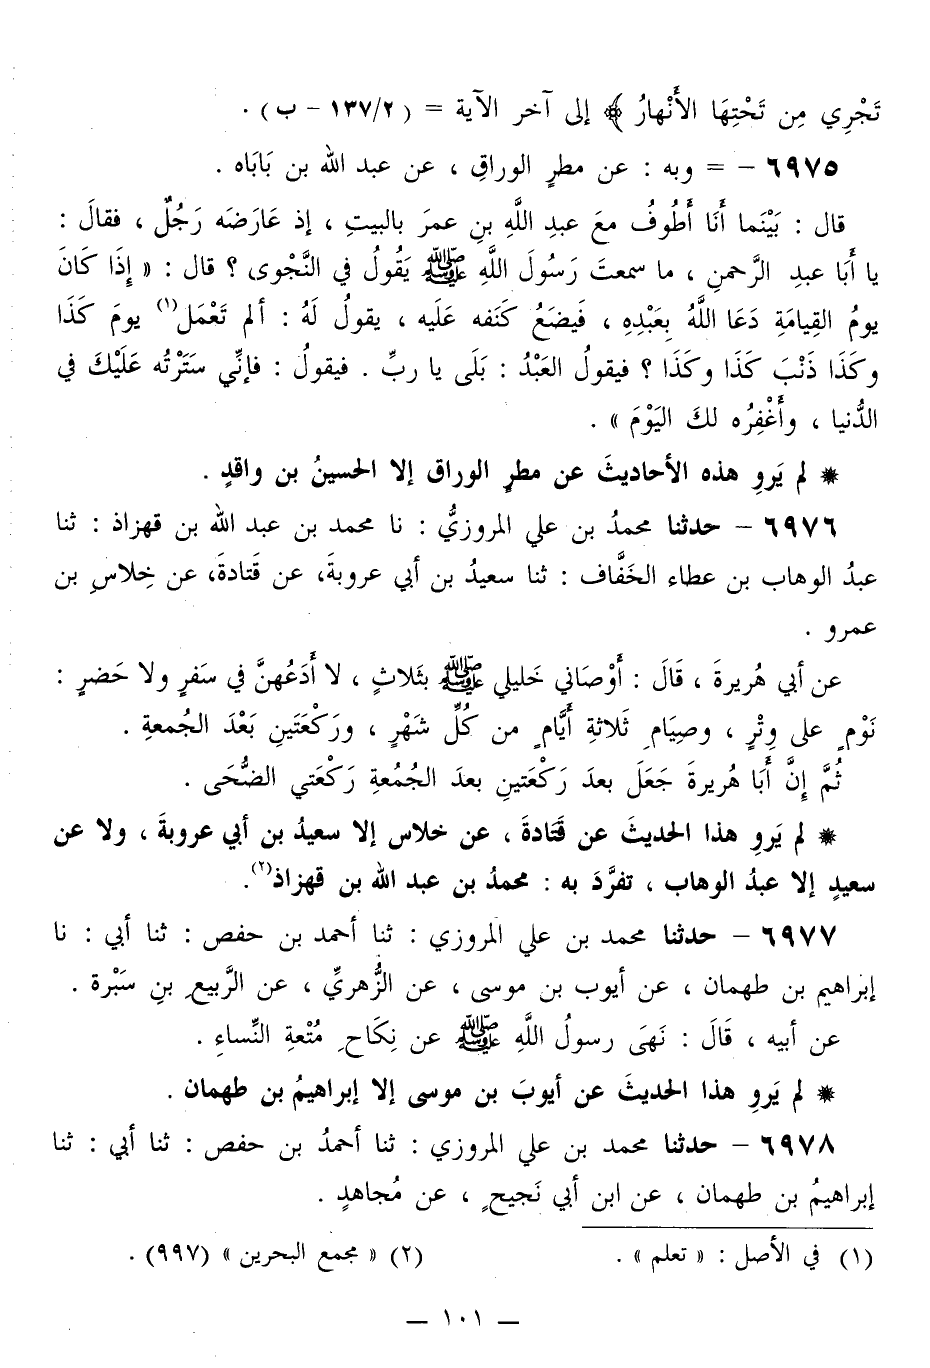 تَجْرِي مِن تَحْتِهَا الأَنْهارُ ﴾ إلى آخر الآية = ( ١٣٧/٢ – ب ) .
٦٩٧٥ – = وبه : عن مطرٍ الوراقِ ، عن عبد الله بن بَابَاه .
قال : بَيْنَما أَنَا أَطُوفُ معَ عبدِ اللَّهِ بنِ عمرَ بالبيتِ ، إذ عَارَضَه رَجُلٌ ، فقالَ :
يا أَبَا عبدِ الرَّحمنِ ، ما سمعتَ رَسُولَ اللَّهِ ﷺ يَقُولُ في النَّجْوى ؟ قال : « إِذَا كانَ
يومُ القِيامَةِ دَعَا اللَّهُ بِعَبْدِهِ ، فَيضَعُ كَنَفه عَلَيه ، يقولُ لَهُ : ألم تَعْمَل(١) يومَ كَذَا
وكَذَا ذَنْبَ كَذَا وكَذَا ؟ فيقولُ العَبْدُ : بَلَى يا ربِّ . فيقولُ : فإنِّي سَتَرْتُه عَلَيْكَ في
الدُّنيا ، وأَغْفِرُه لكَ اليَوْمَ » .
* لم يَروِ هذه الأحاديثَ عن مطرٍ الوراق إلا الحسينُ بن واقدٍ .
٦٩٧٦ – حدثنا محمدُ بن علي المروزيُّ : نا محمد بن عبد الله بن قهزاذ : ثنا
عبدُ الوهاب بن عطاء الخَفَّاف : ثنا سعيدُ بن أبي عروبةَ، عن قَتادةَ، عن خِلاسِ بن
عمرو .
عن أبي هُريرةَ ، قَالَ : أَوْصَاني خَليلي ﷺ بثَلاثٍ ، لا أَدَعُهنَّ في سَفرٍ ولا حَضرٍ :
نَوْمٍ على وِتْرٍ ، وصِيَامِ ثَلاثةِ أَيَّامٍ من كُلِّ شَهْرٍ ، ورَكْعَتَينِ بَعْدَ الجُمعةِ .
ثُمَّ إنَّ أَبَا هُريرةَ جَعَلَ بعدَ رَكْعَتينِ بعدَ الجُمُعةِ رَكْعَتي الضُّحَى .
* لم يَروِ هذا الحديثَ عن قَتادةَ ، عن خلاس إلا سعيدُ بن أبي عروبةَ ، ولا عن
سعيدٍ إلا عبدُ الوهاب ، تفرَّدَ به : محمدُ بن عبد الله بن قهزاذ(٢).
٦٩٧٧ – حدثنا محمد بن علي المروزي : ثنا أحمد بن حفص : ثنا أبي : نا
إبراهيم بن طهمان ، عن أيوب بن موسى ، عن الزُّهريِّ ، عن الرَّبيعِ بنِ سَبْرة .
عن أبيه ، قَالَ : نَهَى رسولُ اللَّهِ ﷺ عن نِكَاحِ مُتْعةِ النِّساءِ .
* لم يَروِ هذا الحديثَ عن أيوبَ بن موسى إلا إبراهيمُ بن طهمان .
٦٩٧٨ – حدثنا محمد بن علي المروزي : ثنا أحمدُ بن حفص : ثنا أبي : ثنا
إبراهيمُ بن طهمان ، عن ابن أبي نَجيحٍ ، عن مُجاهدٍ .
(١) في الأصل : « تعلم » . (٢) « مجمع البحرين » (٩٩٧) .
– ١٠١ –